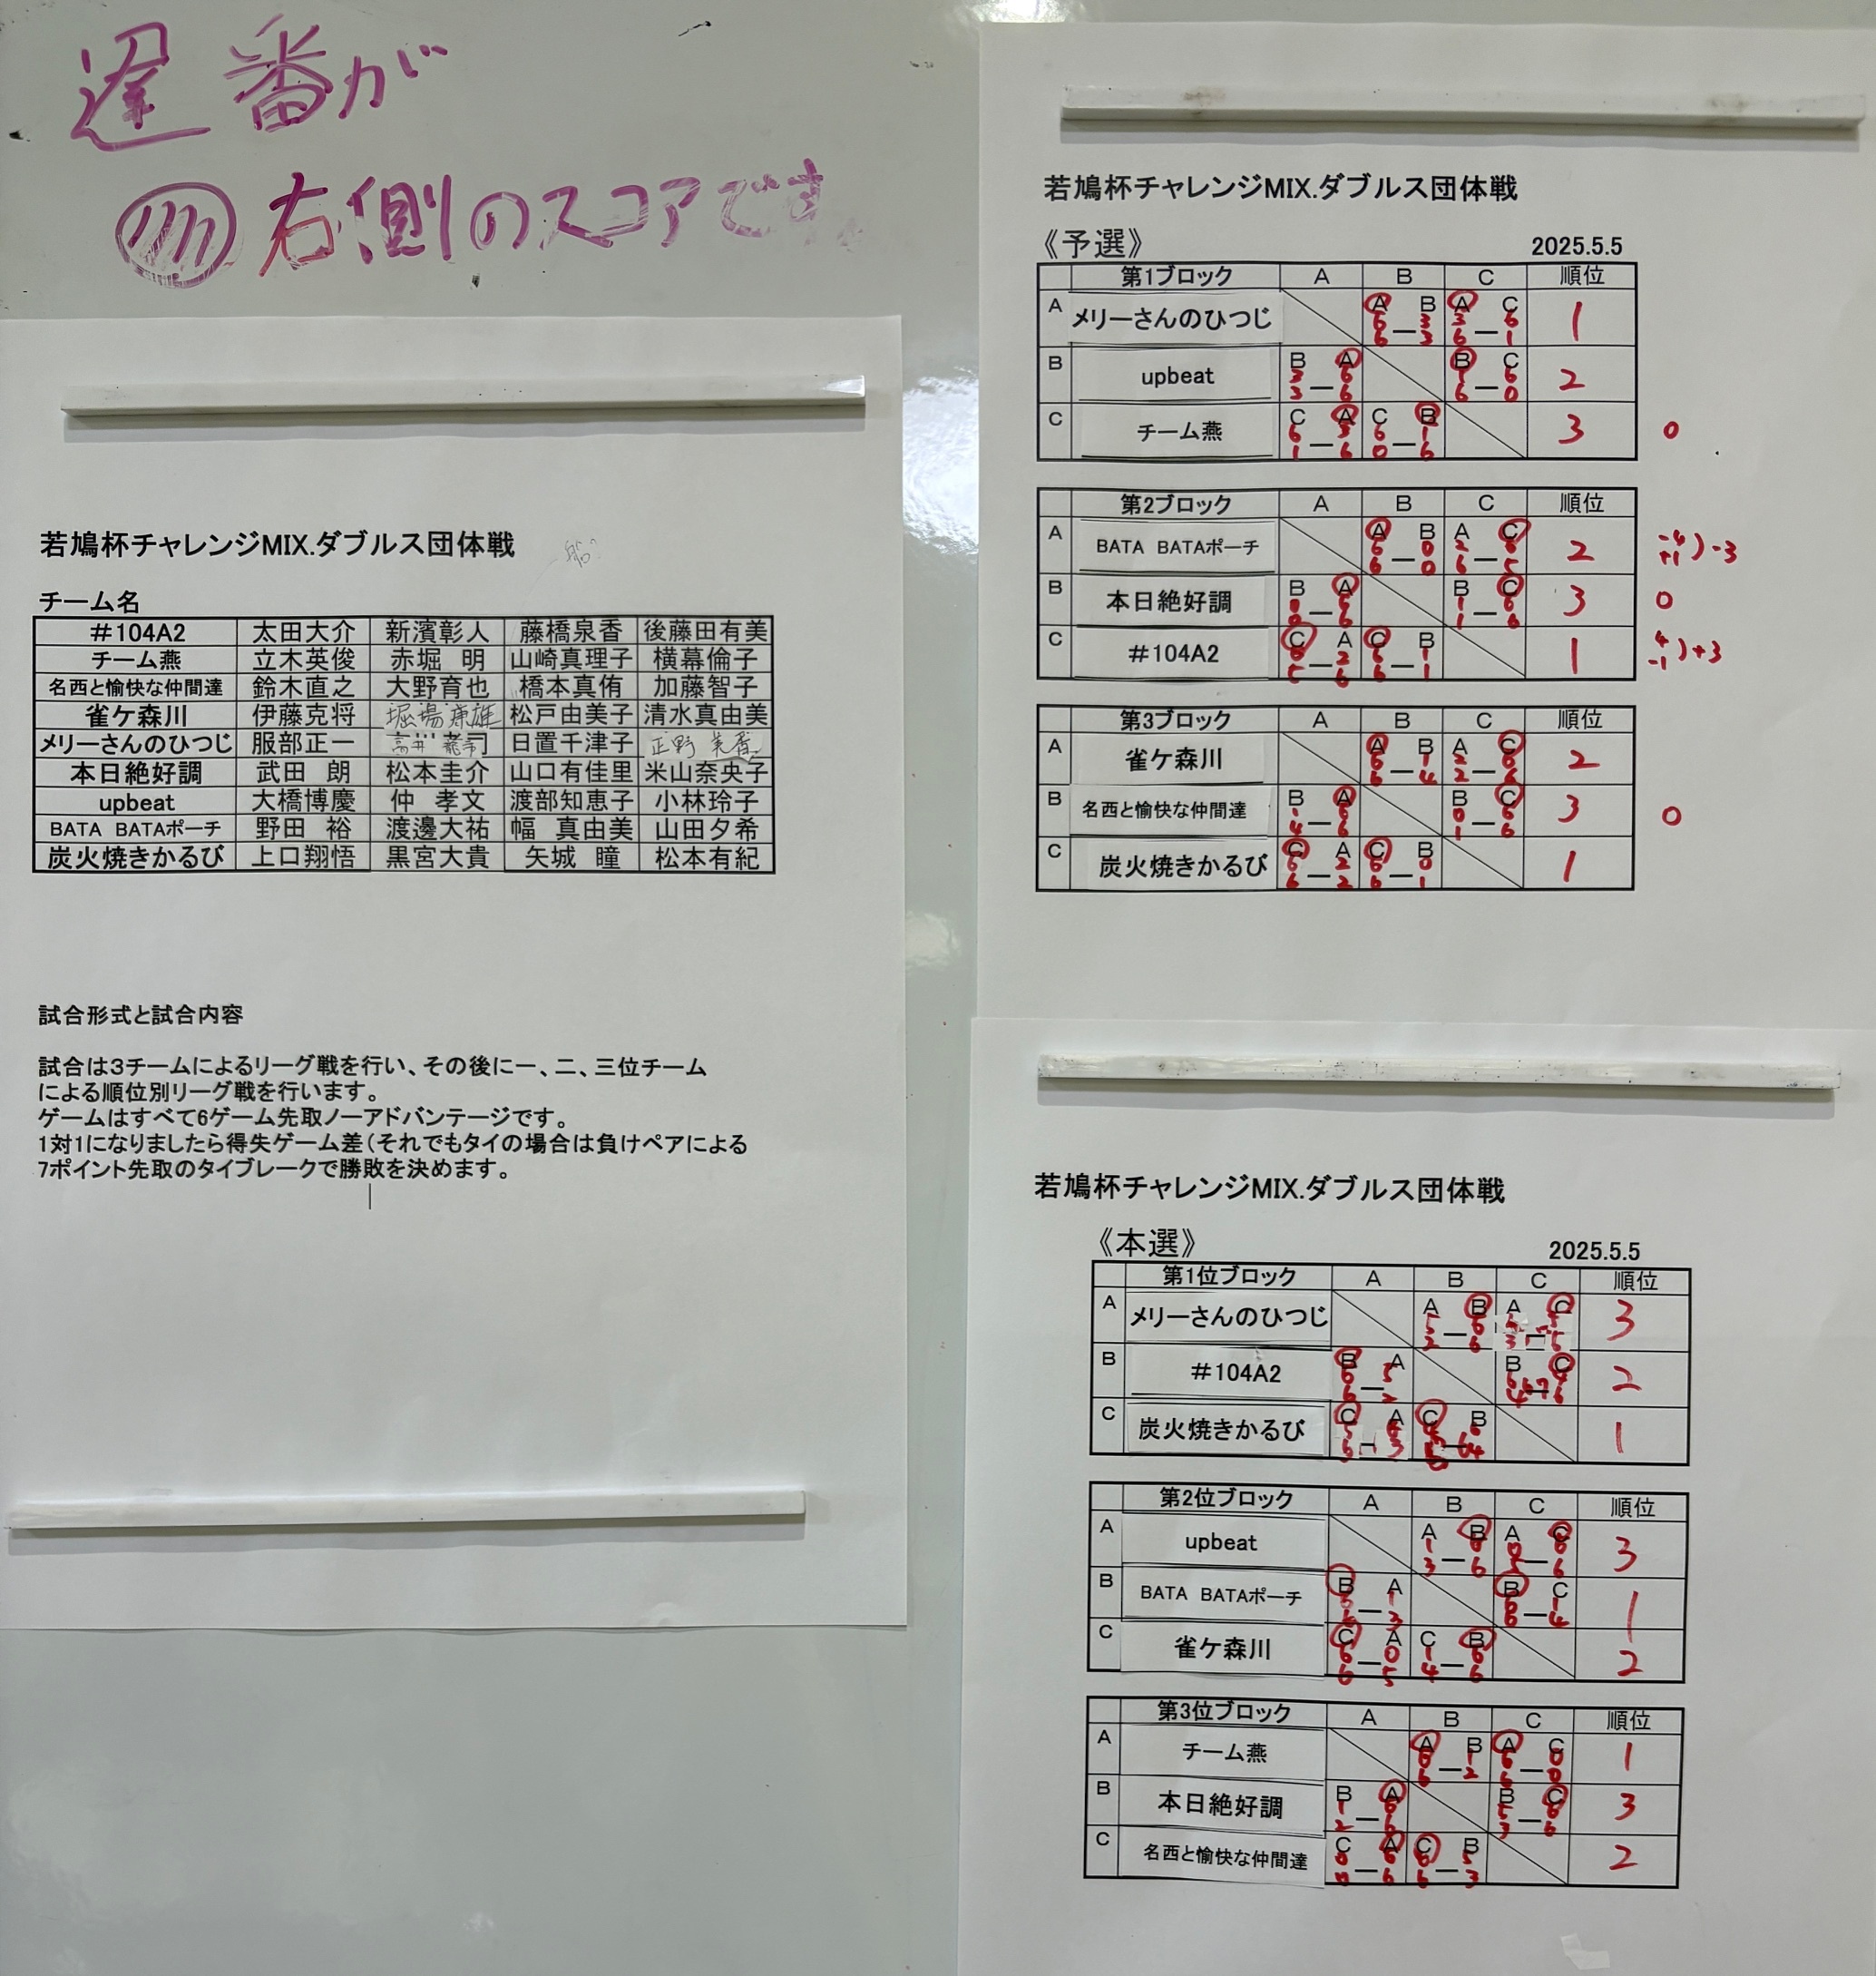 遅番が
右側のスコアです。
若鳩杯チャレンジMIX.ダブルス団体戦
チーム名
＃104A2 太田大介 新濱彰人 藤橋泉香 後藤田有美
チーム燕 立木英俊 赤堀 明 山崎真理子 横幕倫子
名西と愉快な仲間達 鈴木直之 大野育也 橋本真侑 加藤智子
雀ケ森川 伊藤克将 堀場康雄 松戸由美子 清水真由美
メリーさんのひつじ 服部正一 日置千津子
本日絶好調 武田 朗 松本圭介 山口有佳里 米山奈央子
upbeat 大橋博慶 仲 孝文 渡部知恵子 小林玲子
BATA BATAポーチ 野田 裕 渡邊大祐 幅 真由美 山田夕希
炭火焼きかるび 上口翔悟 黒宮大貴 矢城 瞳 松本有紀
試合形式と試合内容
試合は３チームによるリーグ戦を行い、その後に一、二、三位チーム
による順位別リーグ戦を行います。
ゲームはすべて6ゲーム先取ノーアドバンテージです。
1対1になりましたら得失ゲーム差（それでもタイの場合は負けペアによる
7ポイント先取のタイブレークで勝敗を決めます。
若鳩杯チャレンジMIX.ダブルス団体戦
《予選》 2025.5.5
第1ブロック A B C 順位
A メリーさんのひつじ A B A C 1
6 3 3 6
6—3 6—1
B upbeat B A B C 2
3 6 1 6
3—6 6—0
C チーム燕 C A C B 3 0
6 3 6 1
1—6 0—6
第2ブロック A B C 順位
A BATA BATAポーチ A B A C 2 -4 +1 ) -3
6 0 2 6
6—0 6—5
B 本日絶好調 B A B C 3 0
0 6 1 6
0—6 1—6
C ＃104A2 C A C B 1 4 -1 ) +3
6 2 6 1
5—6 6—1
第3ブロック A B C 順位
A 雀ケ森川 A B A C 2
6 1 2 6
6—4 2—6
B 名西と愉快な仲間達 B A B C 3 0
1 6 0 6
4—6 1—6
C 炭火焼きかるび C A C B 1
6 2 6 0
6—2 6—1
若鳩杯チャレンジMIX.ダブルス団体戦
《本選》 2025.5.5
第1位ブロック A B C 順位
A メリーさんのひつじ A B A C 3
5 6
2—6
B ＃104A2 B A B C 2
6 5
6—2
C 炭火焼きかるび C A C B 1
第2位ブロック A B C 順位
A upbeat A B A C 3
1 6 0 6
3—6 5—6
B BATA BATAポーチ B A B C 1
6 1 6 1
6—3 6—4
C 雀ケ森川 C A C B 2
6 0 1 6
6—5 4—6
第3位ブロック A B C 順位
A チーム燕 A B A C 1
6 1 6 0
6—2 6—0
B 本日絶好調 B A B C 3
1 6 5 6
2—6 3—6
C 名西と愉快な仲間達 C A C B 2
0 6 6 5
0—6 6—3